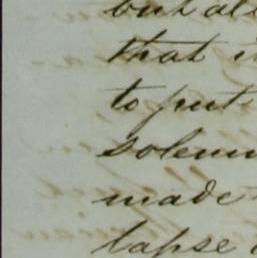 but all
that i
to put
solemn
made
lapse